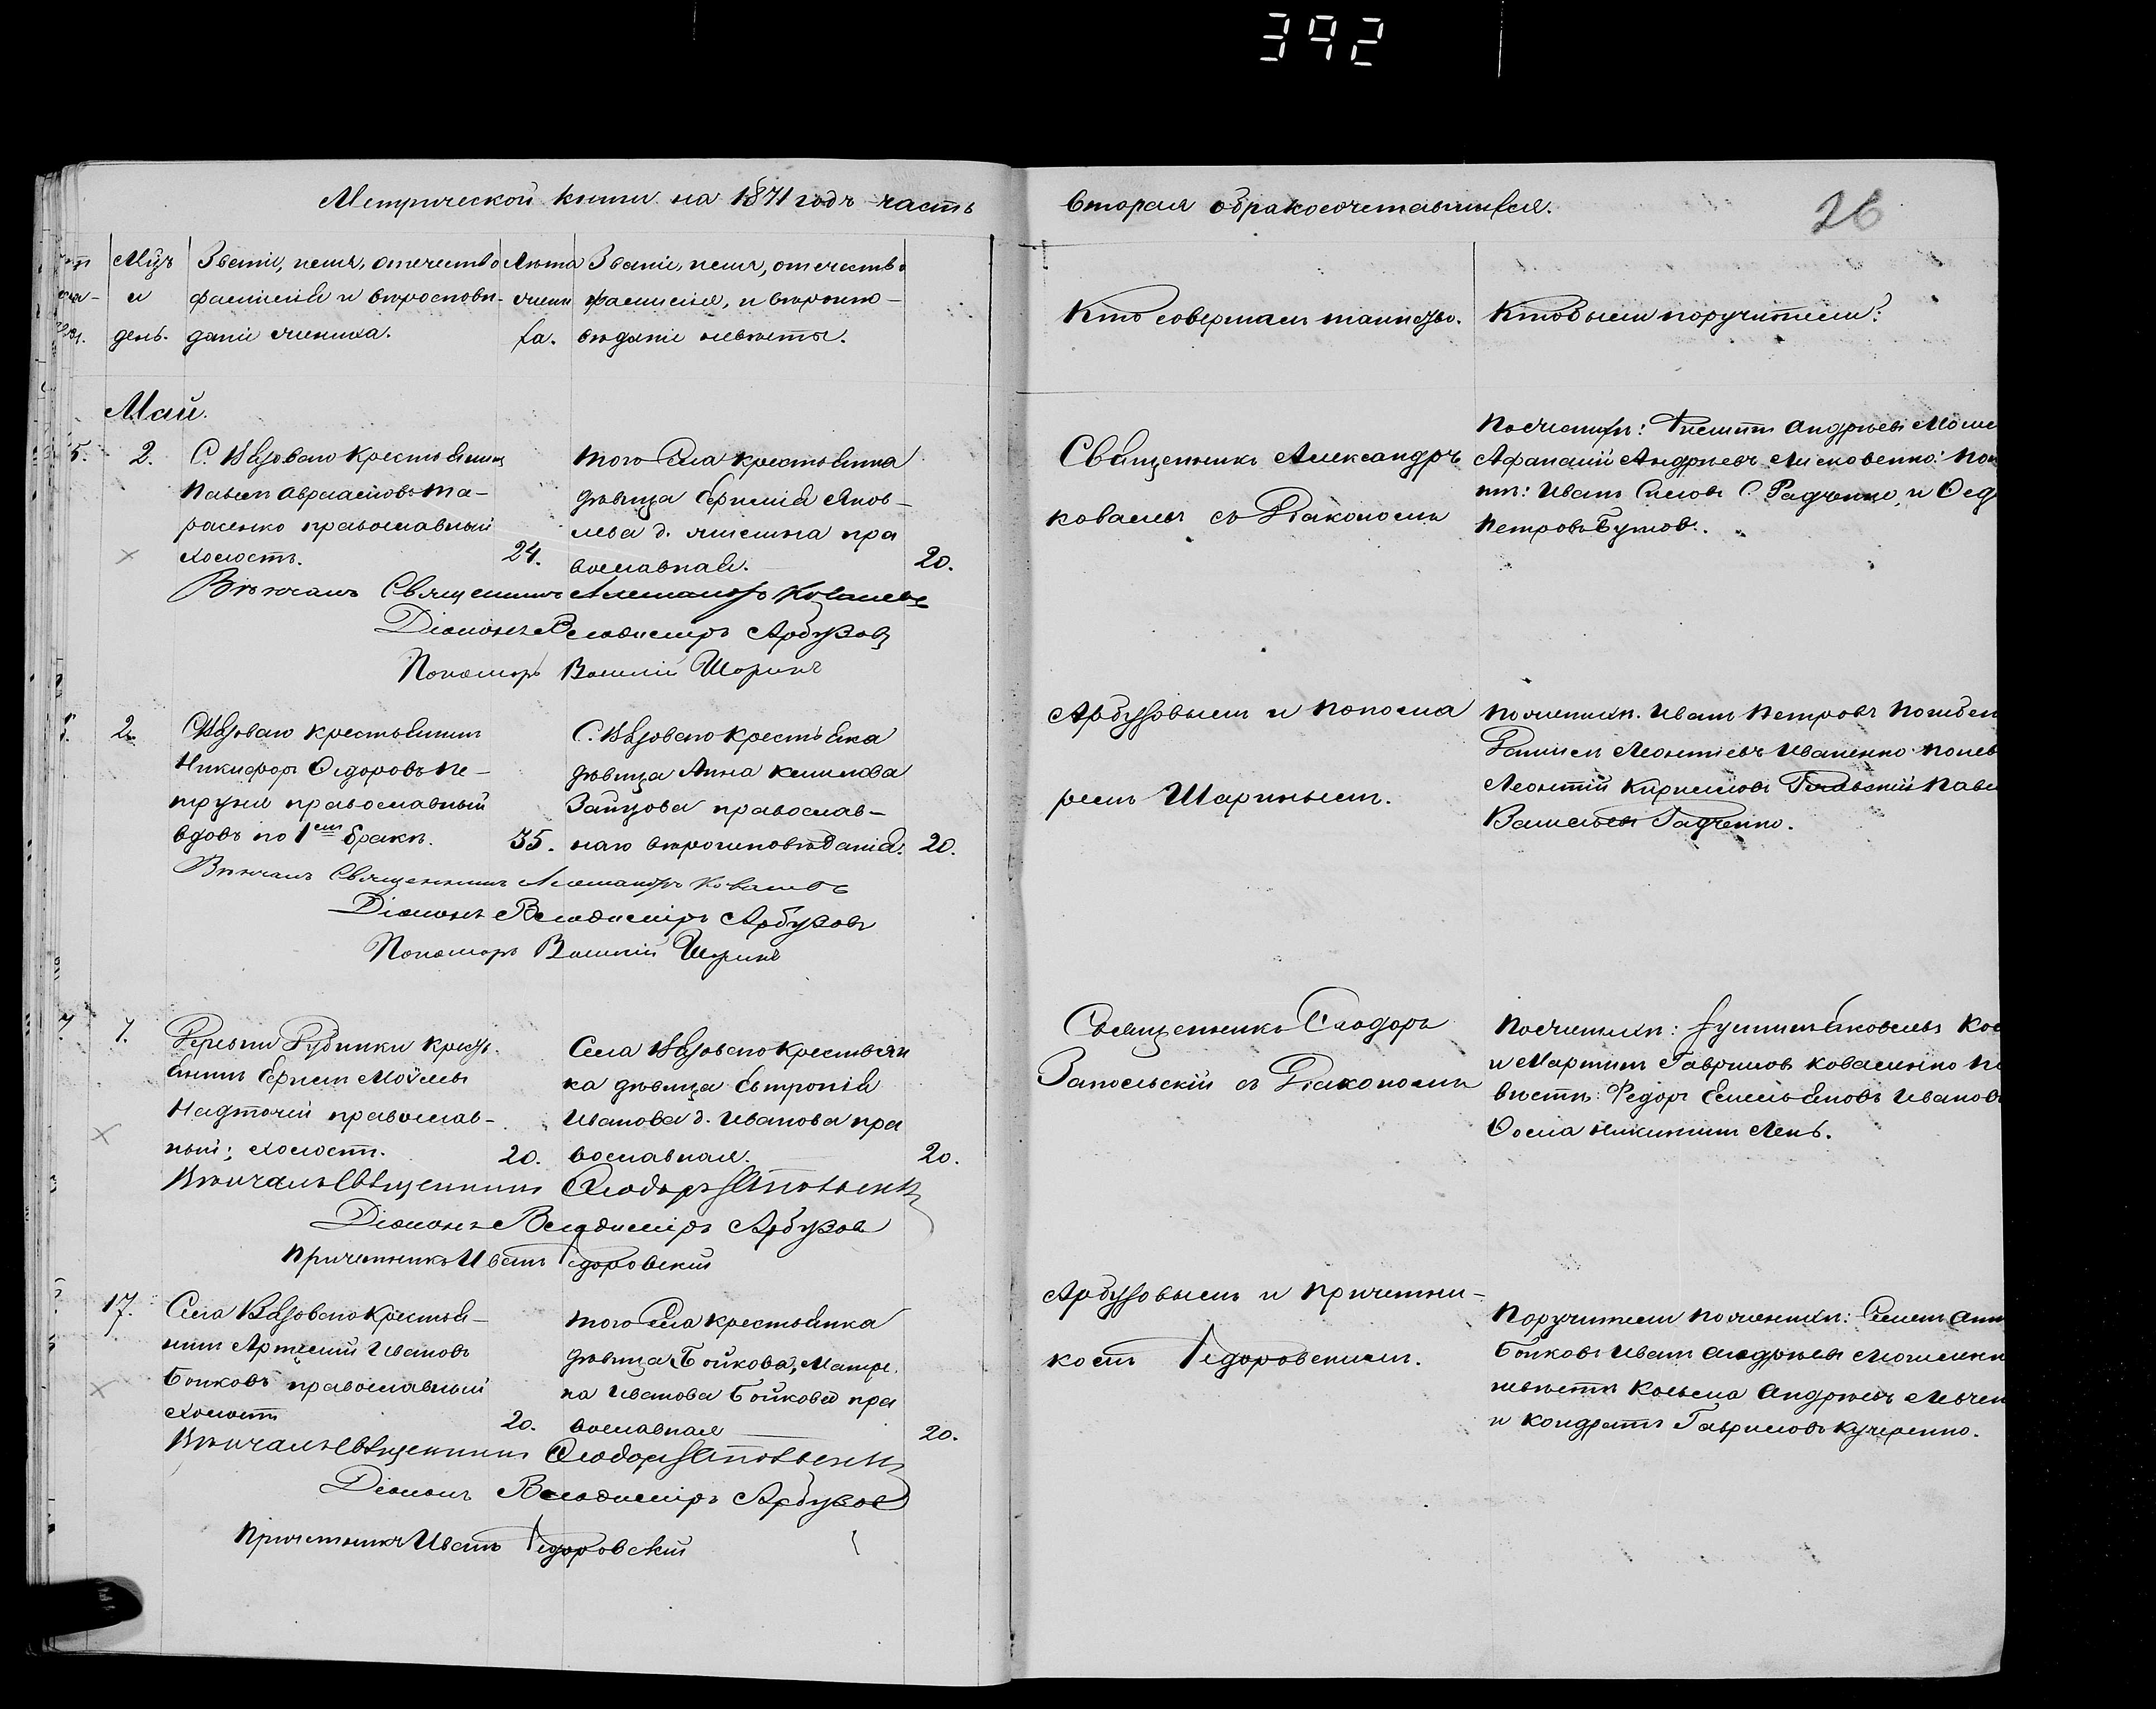 392
Метрической книги на 1871 годъ часть
вторая о бракосочетавшихся.
26
Мцъ
и
день.
Званіе, имя, отечество
фамилія и вѣроисповѣ-
даніе жениха.
Лѣта
жени
ха.
Званіе, имя, отечество
фамилія, и вѣроиспо-
вѣданіе невѣсты.
Кто совершалъ таинство.
Кто были поручители?
Май.
5.
2.
С. Вязоваго крестьянинъ
Павелъ Авраамовъ Та-
расенко православный
холостъ.
24.
того села крестьянка
дѣвица
лева д. пра
вославная.
20.
Священникъ Александръ
Ковалевъ съ Діакономъ
По женихѣ: Андреевъ
Афанасій Андреевъ
Иванъ С. Радченко, и Ѳед
Петровъ Бутов.
Вѣнчалъ Священникъ Александръ Ковалевъ
Діаконъ Владимиръ Арбузовъ
Пономарь Василій Шоринъ
2.
С. Вязоваго крестьянинъ
Никифоръ Ѳедоровъ Пе-
труня православный
вдовъ по 1ем бракѣ.
35.
С. Вязоваго крестьянка
дѣвица Анна Климова
Зайцова православ-
наго вѣроисповѣданія.
20.
Арбузовымъ и понома
ремъ Шаринымъ.
По женихѣ. Иванъ Петровъ
Даниилъ Леонтіевъ Иваненко по нев
Леонтій Кирилловъ Паве
Васильевъ Радченко.
Вѣнчалъ Священникъ Александръ Ковалевъ
Діаконъ Владимиръ Арбузовъ
Пономарь Василій Шоринъ
7.
7.
Деревни Рубинки кресть
янинъ
Надточій православ-
ный; холостъ.
20.
Села Вязоваго крестьян
ка дѣвица Евтропія
Иванова д. Иванова пра
вославная.
20.
Священникъ Ѳеодоръ
Запольскій съ Діакономъ
По женихѣ: Яковлевъ Ков
и Мартинъ Гавриловъ Коваленко по
вѣстѣ: Федоръ Емельяновъ Иванов
Ѳома Никитинъ Лень.
Вѣнчалъ Священникъ Ѳеодоръ Запольскій
Діаконъ Владимиръ Арбузовъ
Причетникъ Иванъ Федоровскій
17.
Села Вязоваго крестья-
нинъ Артемій Ивановъ
Бойковъ православный
холостъ
20.
того села крестьянка
дѣвица Бойкова, Матре
на Иванова Бойкова пра
вославная
20.
Арбузовымъ и причетни-
комъ Федоровскимъ.
Поручители по женихѣ:
Бойковъ Иванъ Андреевъ
невѣстѣ Косьма Андреевъ
и Кондратъ Гавриловъ Кучеренко.
Вѣнчалъ Священникъ Ѳеодоръ Запольскій
Діаконъ Владимиръ Арбузовъ
Причетникъ Иванъ Федоровскій